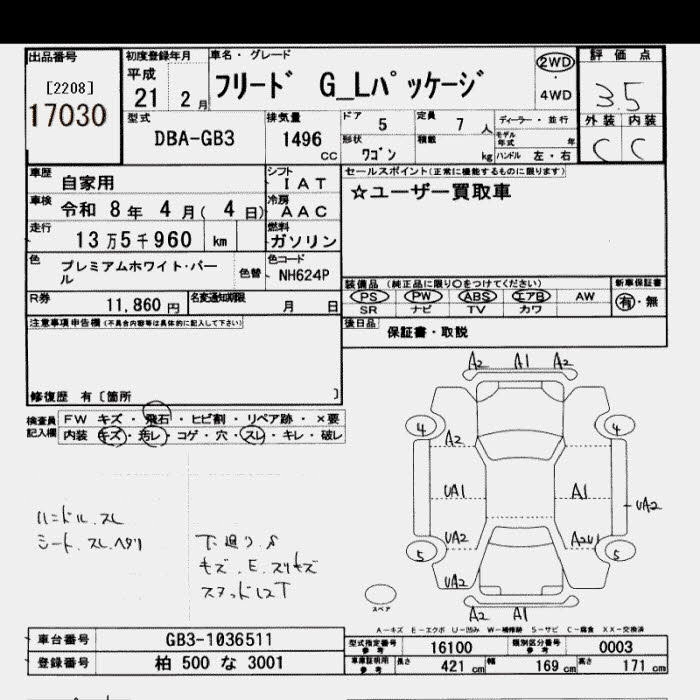 出品番号
[2208]
17030
初度登録年月
平成
21 2 月
車名・グレード
フリード G_Lパッケージ
2WD
4WD
評価点
3.5
外装 内装
C C
型式
DBA-GB3
排気量
1496 cc
ドア 5
定員 7 人
形状 ワゴン
積載 kg
ディーラー・並行
モデル年式 年
ハンドル 左・右
車歴 自家用
シフト IAT
車検 令和 8年 4月( 4日)
冷房 AAC
走行 13万5千960 km
燃料 ガソリン
色 プレミアムホワイト・パール
色替
色コード NH624P
R券 11,860 円
名変通知期限 月 日
セールスポイント(正常に機能するものに限ります)
☆ユーザー買取車
装備品 (純正品に限り○をつけてください)
PS PW ABS エアB AW
SR ナビ TV カワ
新車保証書
有・無
後日品 保証書・取説
注意事項申告欄 (不具合内容等は具体的に記入して下さい)
修復歴 有〔箇所 〕
検査員記入欄
FW キズ・飛石・ヒビ割・リペア跡・×要
内装 キズ・汚レ・コゲ・穴・スレ・キレ・破レ
A2 A1 A2
4 4
A2
UA1 A1
UA2
UA2 A2U1
5 5
UA2
A2 A1
ハンドル.スレ
シート.スレ.ヘタリ
下廻り.S
キズ.E.スリキズ
スタッドレスT
スペア
A-キズ E-エクボ U-凹み W-補修跡 S-サビ C-腐食 XX-交換済
車台番号 GB3-1036511
登録番号 柏 500 な 3001
型式指定番号 参考 16100
類別区分番号 参考 0003
車庫証明用 参考
長さ 421 cm
幅 169 cm
高さ 171 cm